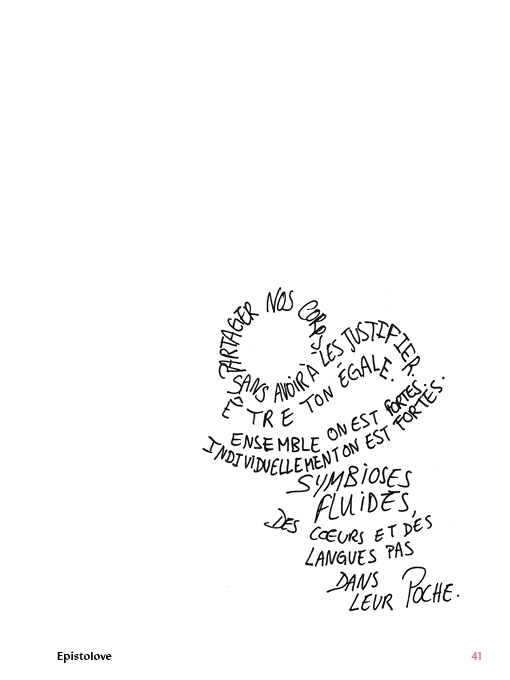 PARTAGER NOS CORPS
SANS AVOIR À LES JUSTIFIER.
ÊTRE TON ÉGALE.
ENSEMBLE ON EST FORTES
INDIVIDUELLEMENT ON EST FORTES.
SYMBIOSES
FLUIDES,
DES CŒURS ET DES
LANGUES PAS
DANS
LEUR POCHE.
Epistolove
41